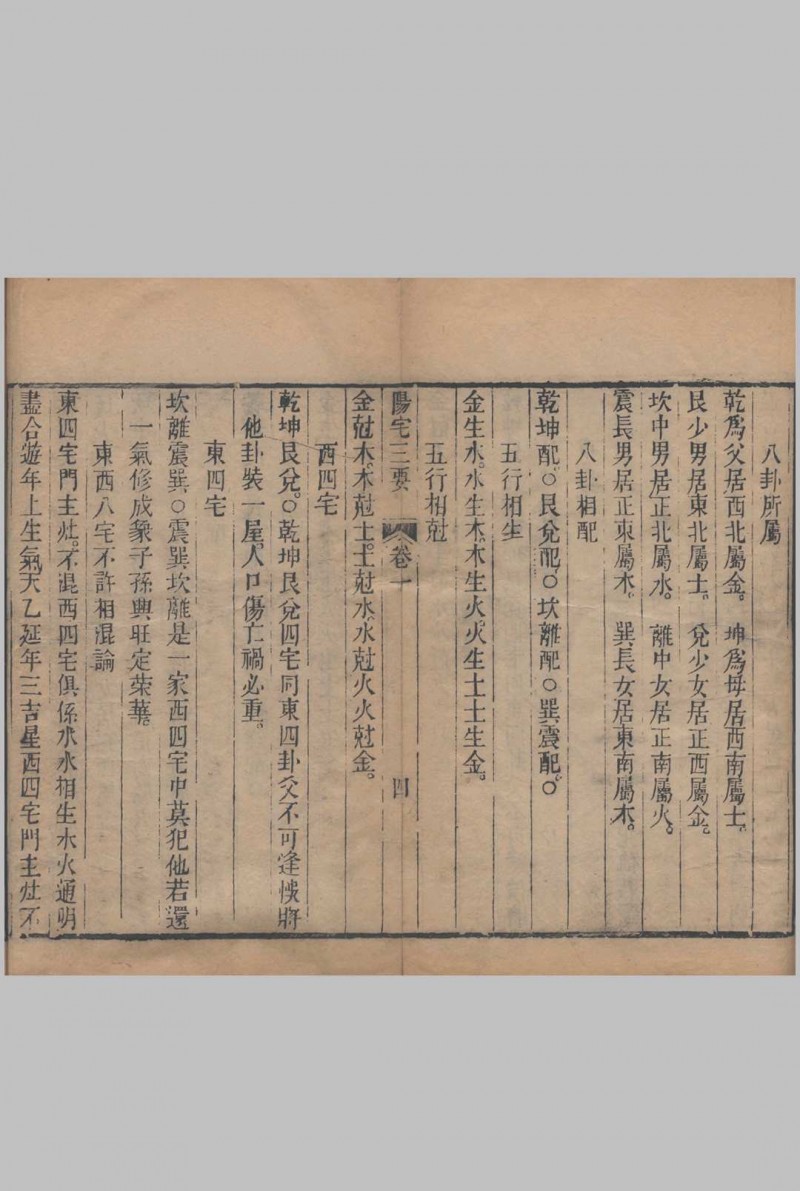 八卦所屬
乾爲父居西北屬金。 坤爲母居西南屬土。
艮少男居東北屬土。 兌少女居正西屬金。
坎中男居正北屬水。 離中女居正南屬火。
震長男居正東屬木。 巽長女居東南屬木。
八卦相配
乾坤配。○艮兌配。○坎離配○巽震配。○
五行相生
金生水。水生木。木生火。火生土土生金。
五行相尅
陽宅三要 卷一 四
金尅木。木尅土。土尅水。水尅火火尅金。
西四宅
乾坤艮兌。○乾坤艮兌四宅同東四卦爻不可逢悞將
他卦裝一屋。人口傷亡禍必重。
東四宅
坎離震巽○震巽坎離是一家西四宅中莫犯他若還
一氣修成象子孫興旺定荣華。
東西八宅不許相混論
東四宅門主灶。不混西四宅俱係水木相生木火通明
盡合遊年上生氣天乙延年三吉星西四宅門主灶不